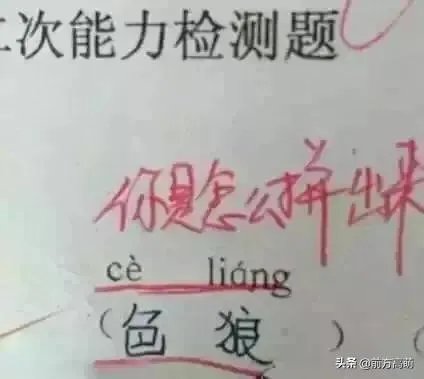 二次能力检测题
你是怎么拼出来
cè liáng
（色 狼 ）（
头条 @前方高萌